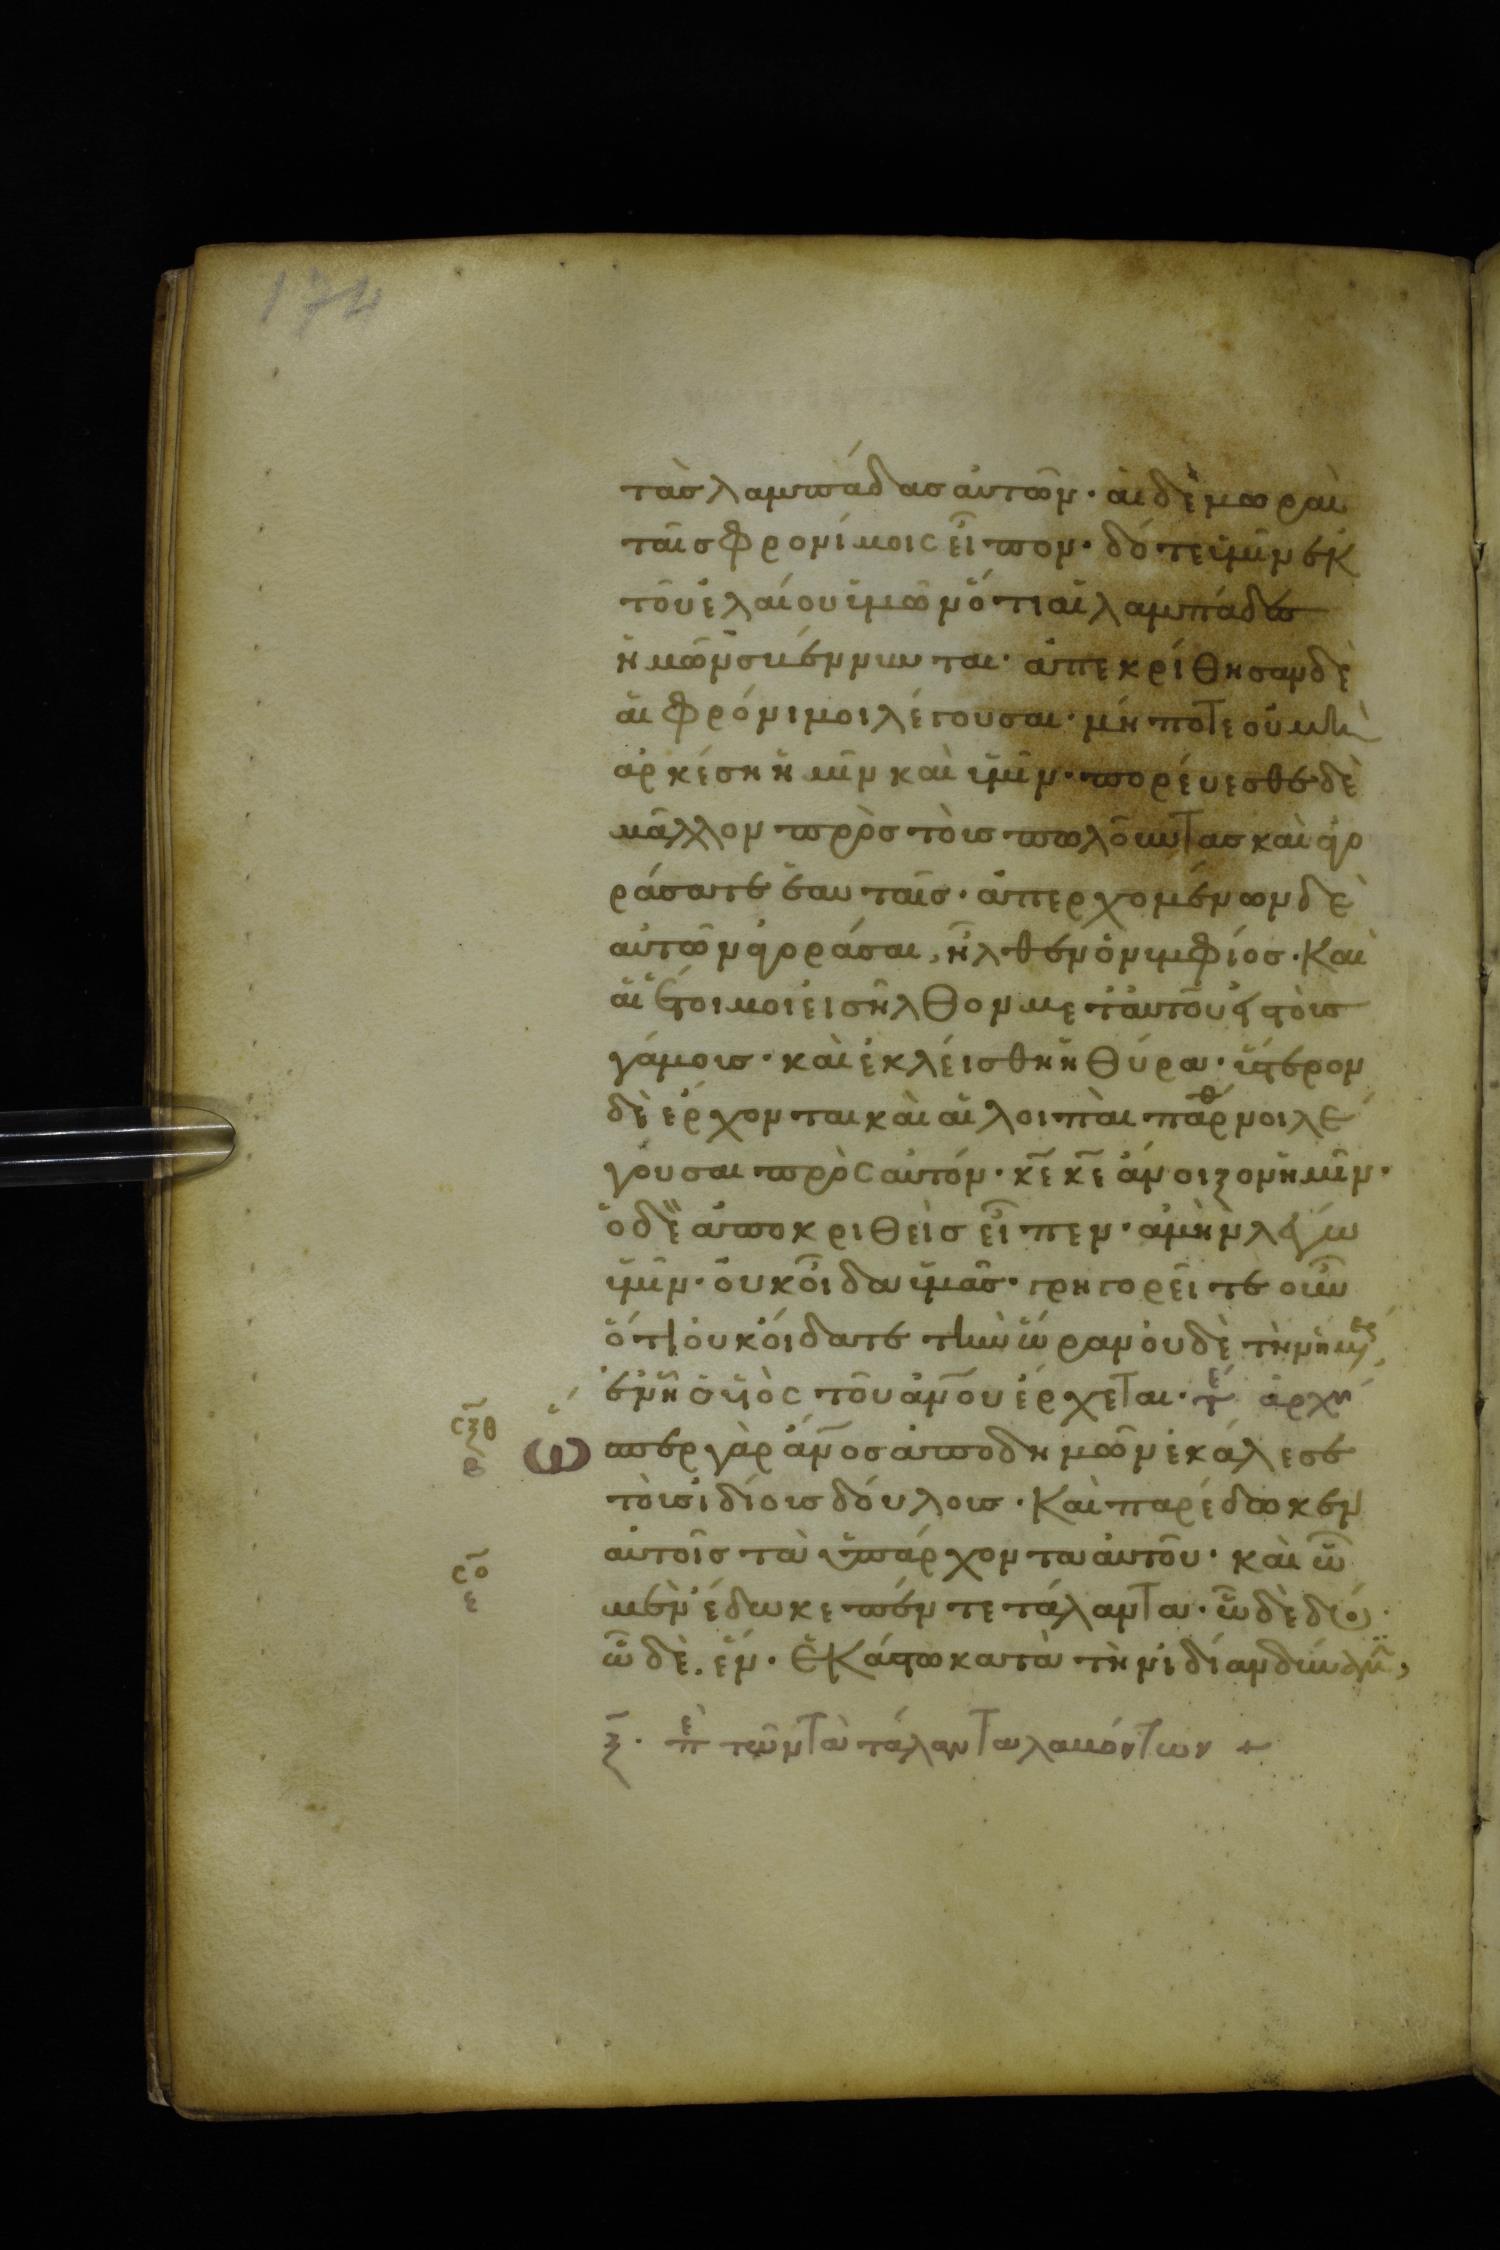 174
τὰσ λαμπάδασ ἀυτῶν· ἁι δὲ μωραὶ
ταῖσ φρονίμοις εἶπον· δότε ἡμῖν ἐκ
τοῦ ἐλαίου ὑμῶν ὅτι αἱ λαμπάδες
ἡμῶν σβέννυνται· ἀπεκρίθησαν δὲ
αἱ φρόνιμοι λέγουσαι· μήποτε οὐ μὴ
ἀρκέση ἡμῖν καὶ ὑμῖν· πορέυεσθε δὲ
μᾶλλον πρὸσ τοὺσ πωλοῦντασ καὶ ἀγο
ράσατε ἑαυταῖσ· ἀπερχομένων δὲ
αὐτῶν ἀγοράσαι, ἦλθεν ὁ νυμφίοσ· Καὶ
αἱ ἕτοιμοι εἰσῆλθον μετ' ἀυτοῦ εἰς τοὺσ
γάμουσ· καὶ ἐκλείσθη ἡ θύρα· ὕστερον
δὲ ἔρχονται καὶ αἱ λοιπαὶ παρθένοι λέ
γουσαι πρὸς αὐτόν· κε κε ἄνοιξον ἡμῖν·
ὁ δὲ ἀποκριθεὶσ εἶπεν· ἀμὴν λέγω
ὑμῖν· οὐκ οἶδα ὑμᾶσ· γρηγορεῖτε οὖν
ὅτι οὐκ οἴδατε τὴν ὥραν οὐδὲ τὴν ἡμέραν
ἐν ἧ ὁ υἱὸς τοῦ ἀνου ἔρχεται· τε ἀρχή
σξθ Ὥσπερ γὰρ ἄνοσ ἀποδημῶν ἐκάλεσε
β
τοὺσ ἰδίουσ δούλουσ· Καὶ παρέδωκεν
αὐτοῖσ τὰ ὑπάρχοντα ἀυτοῦ· καὶ ὧ
σο μὲν ἔδωκε πέντε τάλαντα· ὧ δὲ δύο·
ε
ὧ δὲ ἕν· Ἑκάστω κατὰ τὴν ἰδίαν δύναμιν,
ξ· πε τῶν τὰ τάλαντα λαβόντων +